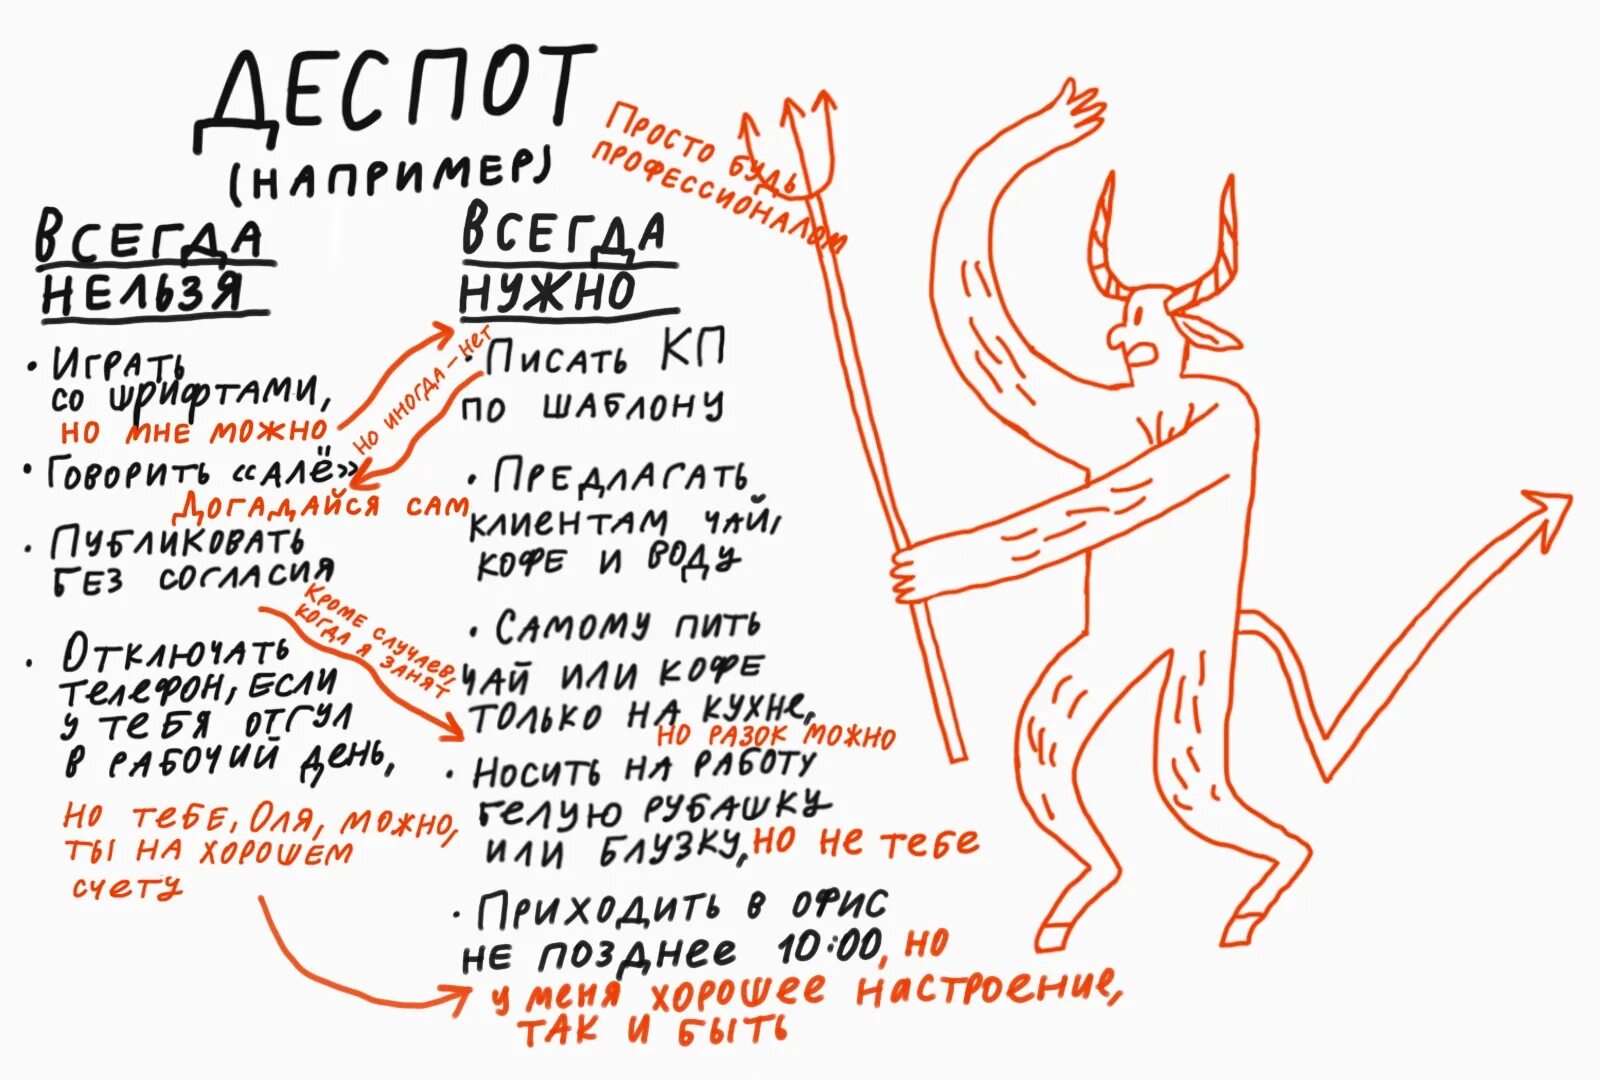 ДЕСПОТ
(НАПРИМЕР)
Просто будь
профессионалом
ВСЕГДА
НЕЛЬЗЯ
• Играть
со шрифтами,
но мне можно
• Говорить «алё»
Догадайся сам
• Публиковать
без согласия
Кроме случаев,
когда я занят
• Отключать
телефон, если
у тебя отгул
в рабочий день,
Но тебе, Оля, можно,
ты на хорошем
счету
Но иногда – нет
ВСЕГДА
НУЖНО
• Писать КП
по шаблону
• Предлагать
клиентам чай,
кофе и воду
• Самому пить
чай или кофе
только на кухне,
но разок можно
• Носить на работу
белую рубашку
или блузку, но не тебе
• Приходить в офис
не позднее 10:00, но
у меня хорошее настроение,
так и быть